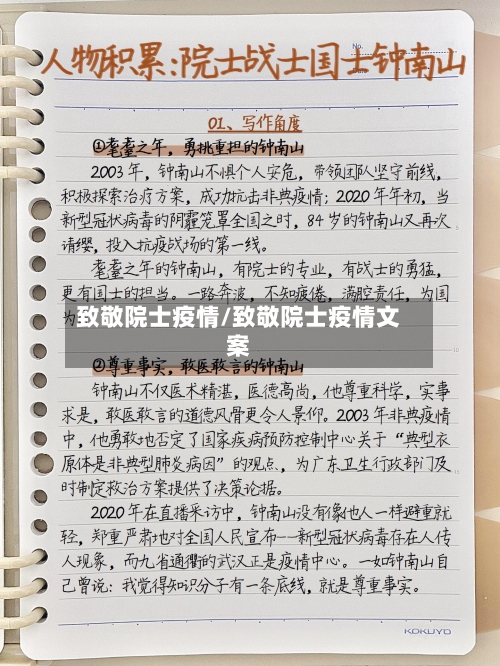 人物积累:院士战士国士钟南山
No.
01、写作角度
①耄耋之年,勇挑重担的钟南山
2003年,钟南山不惧个人安危,带领团队坚守前线,
积极探索治疗方案,成功抗击非典疫情;2020年年初,当
新型冠状病毒的阴霾笼罩全国之时,84岁的钟南山又再次
请缨,投入抗疫战场的第一线。
耄耋之年的钟南山,有院士的专业,有战士的勇猛,
更有国士的担当。一路奔波,不知疲倦,满腔责任,为国
为
致敬院士疫情/致敬院士疫情文
案
②尊重事实,敢医敢言的钟南山
钟南山不仅医术精湛,医德高尚,他尊重科学,实事
求是,敢医敢言的道德风骨更令人景仰。2003年非典疫情
中,他勇敢地否定了国家疾病预防控制中心关于“典型衣
原体是非典型肺炎病因”的观点,为广东卫生行政部门及
时制定救治方案提供了决策论据。
2020年在直播采访中,钟南山没有像他人一样避重就
轻,郑重严肃地对全国人民宣布——新型冠状病毒存在人传
人现象,而九省通衢的武汉正是疫情中心。一如钟南山自
己曾说:我觉得知识分子有一条底线,就是尊重事实。
KOKUYO